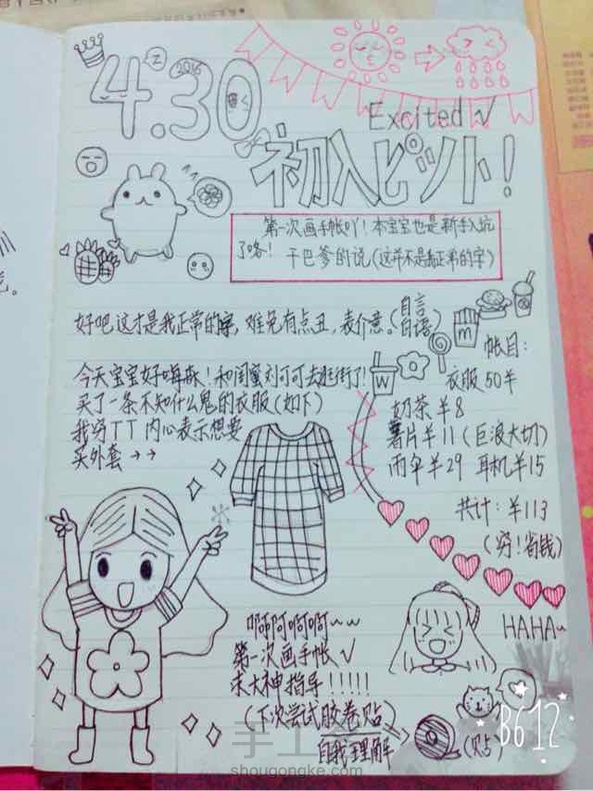 4.30
2016
Excited √
初入ピット!
第一次画手帐吖!本宝宝也是新手入坑
了咯! 干巴爹的说(这并不是我正常的字)
好吧这才是我正常的字,难免有点丑,表介意。(自言
自语)
帐目:
今天宝宝好嗨森!和闺蜜刘可可去逛街了!
衣服50¥
买了一条不知什么鬼的衣服(如下)
奶茶¥8
我穷TT 内心表示想要
薯片¥11(巨浪大切)
买外套→→
雨伞¥29 耳机¥15
共计:¥113
(穷!省钱)
啊啊啊啊啊~~
第一次画手帐√
求大神指导!!!!!
(下次尝试胶卷贴)
自我理解
(贝占)
HAHA~
M
W
B612
手工客
shougongke.com